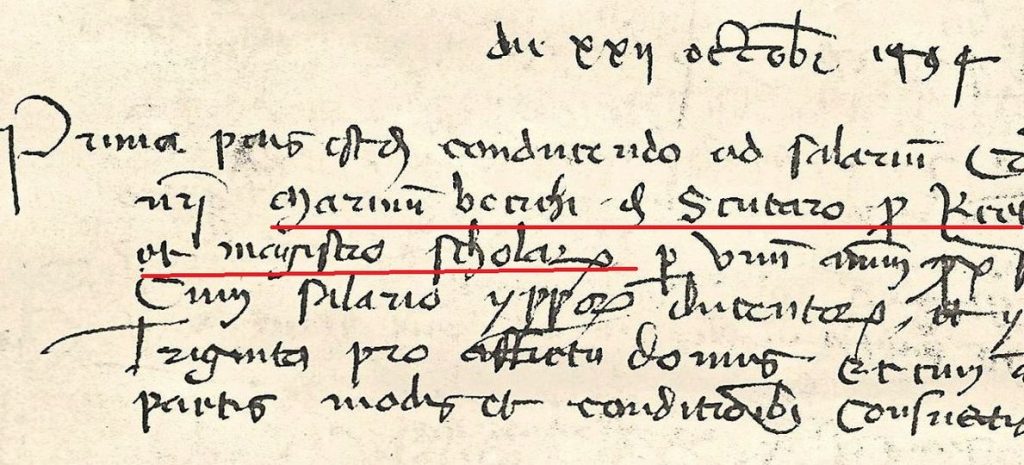 die xxij octobr 1494
Prima pars est de conducendo ad salariũ
nr̃i Marinũ becichi de Scutaro ꝑ
et magistro scholarꝝ ꝑ Vnũ annũ
Cum salario ypporꝝ ducentorꝝ, et y
Triginta pro affictu domus et cum
pactis modis et conditionibꝰ Consueti